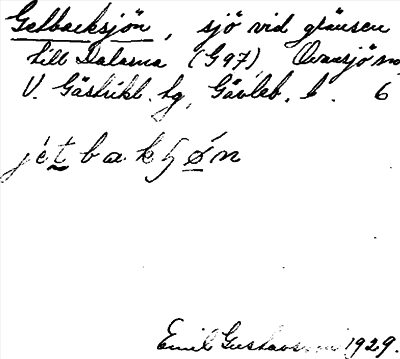 Getbacksjön, sjö vid gränsen
till Dalarna (G97), Ovansjö sn,
V. Gästrikl. tg, Gävleb. l. 6
jètbakʃø̀n
Emil Gustavsson 1929.